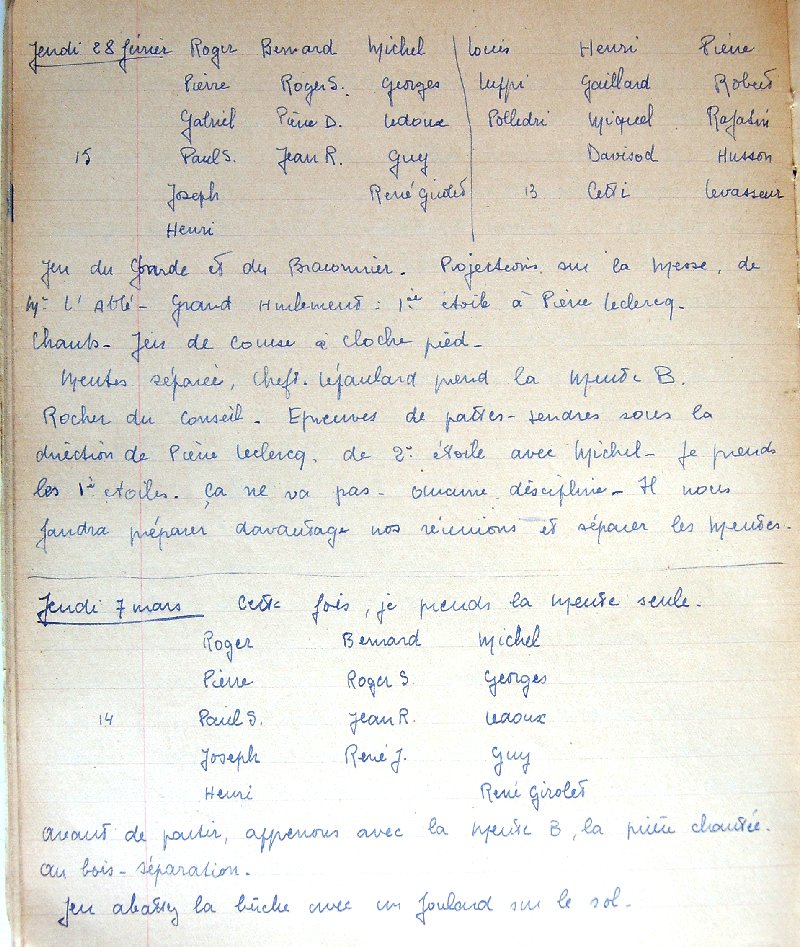 Jeudi 28 février Roger Bernard Michel Louis Henri Pierre
Pierre Roger S. Georges Luppi Gaillard Robert
Gabriel Pierre D. Ledoux Polledri Miquel
15 Paul S. Jean R. Guy Davisod Husson
Joseph René Girolet 13 Cetti Levasseur
Henri
Jeu du Garde et du Braconnier. Projections sur la Messe, de
Mr L'Abbé - Grand Hurlement : 1ère étoile à Pierre Leclercq.
Chants - Jeu de course à cloche pied -
Meutes séparée, Cheft. prend la Meute B.
Rocher du Conseil. Epreuves de pattes-tendres sous la
direction de Pierre Leclercq. de 2e étoile avec Michel - Je prends
les 1è étoiles. Ça ne va pas - aucune déscipline - Il nous
faudra préparer davantage nos réunions et séparer les Meutes -
Jeudi 7 mars Cette fois, je prends la Meute seule.
Roger Bernard Michel
Pierre Roger S. Georges
14 Paul S. Jean R. Ledoux
Joseph René J. Guy
Henri René Girolet
avant de partir, apprenons avec la Meute B, la prière chantée.
au bois - séparation.
Jeu abattez la bûche avec un foulard sur le sol -